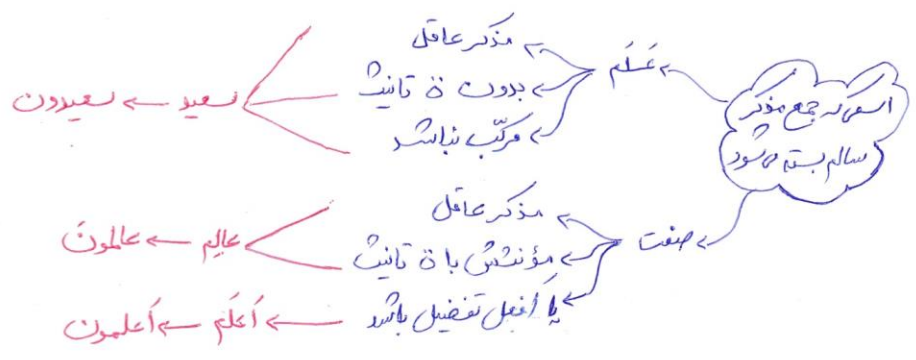 اسمی که جمع مذکر
سالم بسته می‌شود
عَلَم
مذکر عاقل
بدون ة تانیث
مرکّب نباشد
سعید ← سعیدون
صفت
مذکر عاقل
مؤنثش با ة تانیث
یا أفعل تفضیل باشد
عالِم ← عالمونَ
أعلَم ← أعلمون